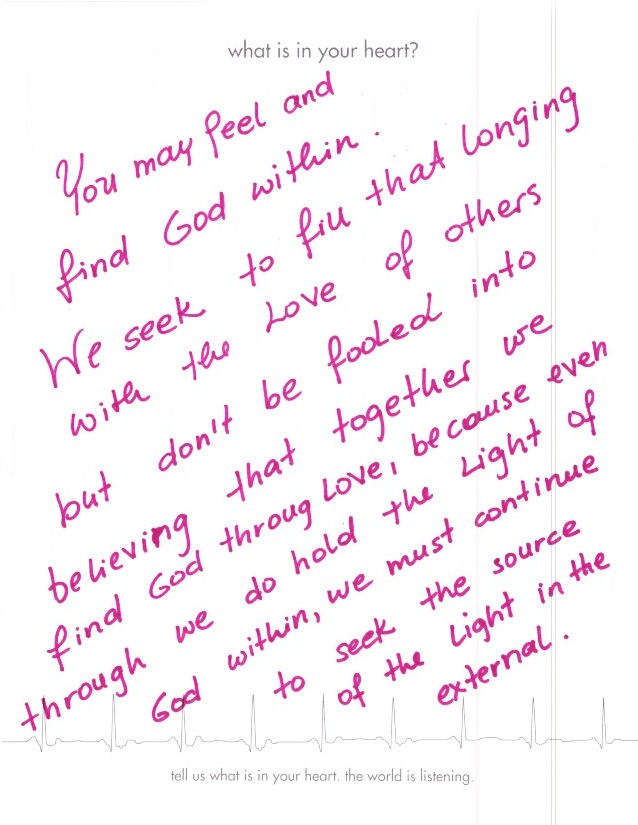 what is in your heart?
You may feel and
find God within.
We seek to fill that longing
with the Love of others
but don't be fooled into
believing that together we
find God throug Love, because even
through we do hold the Light of
God within, we must continue
to seek the source
of the Light in the
external.
tell us what is in your heart. the world is listening.